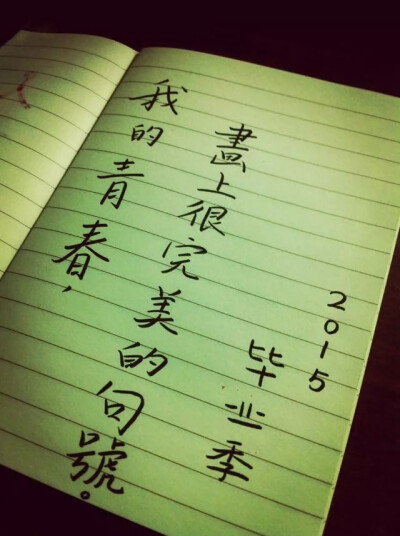 我的青春，
畫上很完美的句號。
毕业季
2015